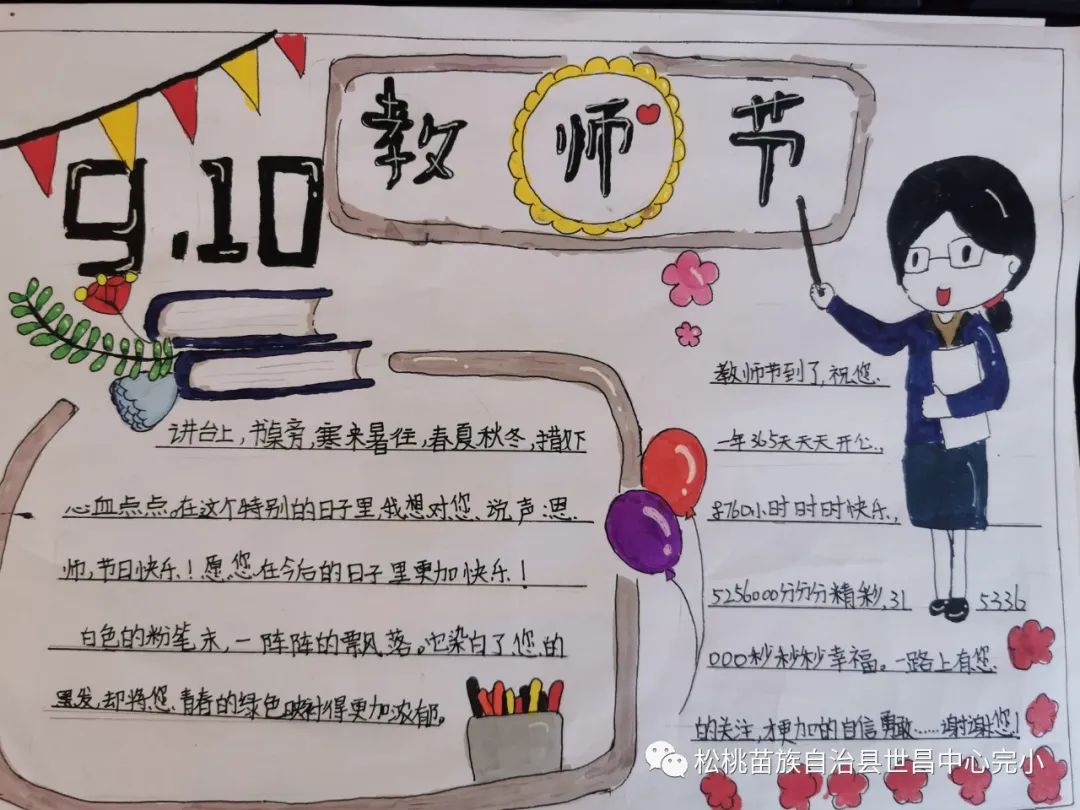 教师节
9.10
讲台上,书桌旁,寒来暑往,春夏秋冬,撒下
心血点点。在这个特别的日子里,我想对您、说声:恩
师,节日快乐!愿您在今后的日子里更加快乐!
白色的粉笔末,一阵阵的飘落。它染白了您的
黑发,却将您青春的绿色映衬得更加浓郁。
教师节到了,祝您.
一年365天天天开心,
8760小时时时快乐,
5256000分分分精彩,31 5336
000秒秒秒幸福。一路上有您
的关注,才更加的自信勇敢……谢谢您!
松桃苗族自治县世昌中心完小